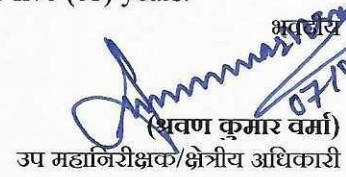 years.
भवदीय
07/1
(श्रवण कुमार वर्मा)
उप महानिरीक्षक/क्षेत्रीय अधिकारी